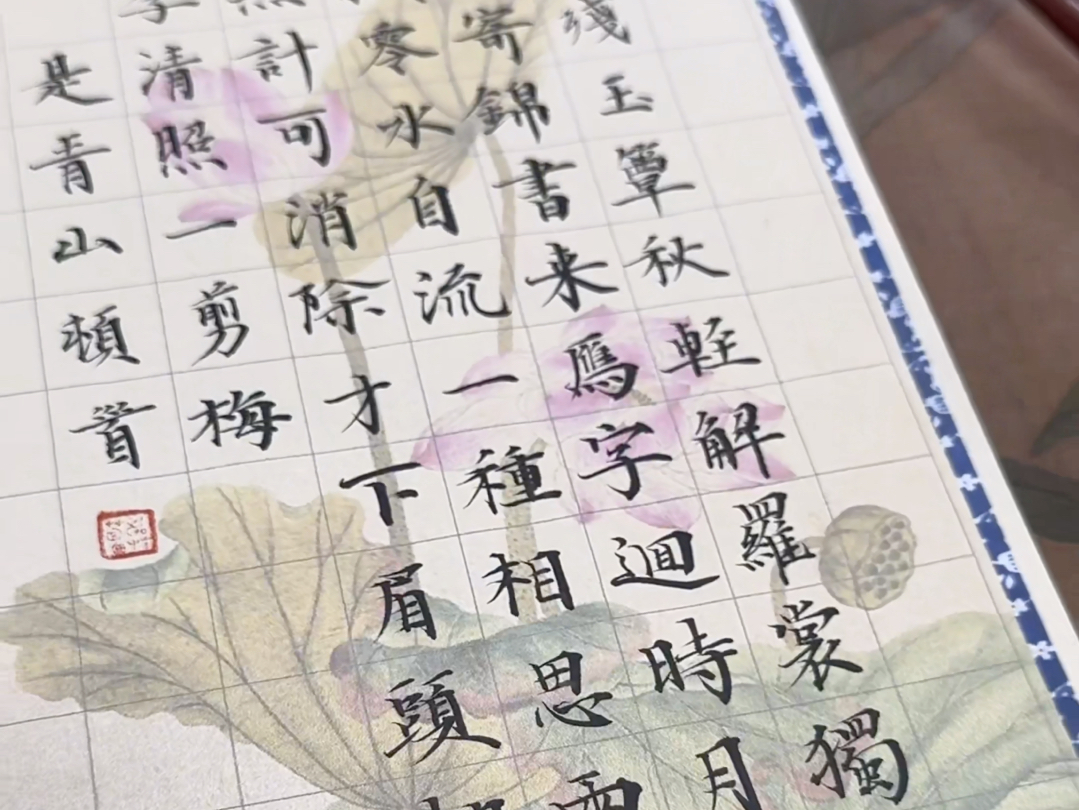 殘玉簟秋輕解羅裳獨
寄錦書来鴈字迴時月
零水自流一種相思兩
計可消除才下眉頭
李清照一剪梅
是青山頓首